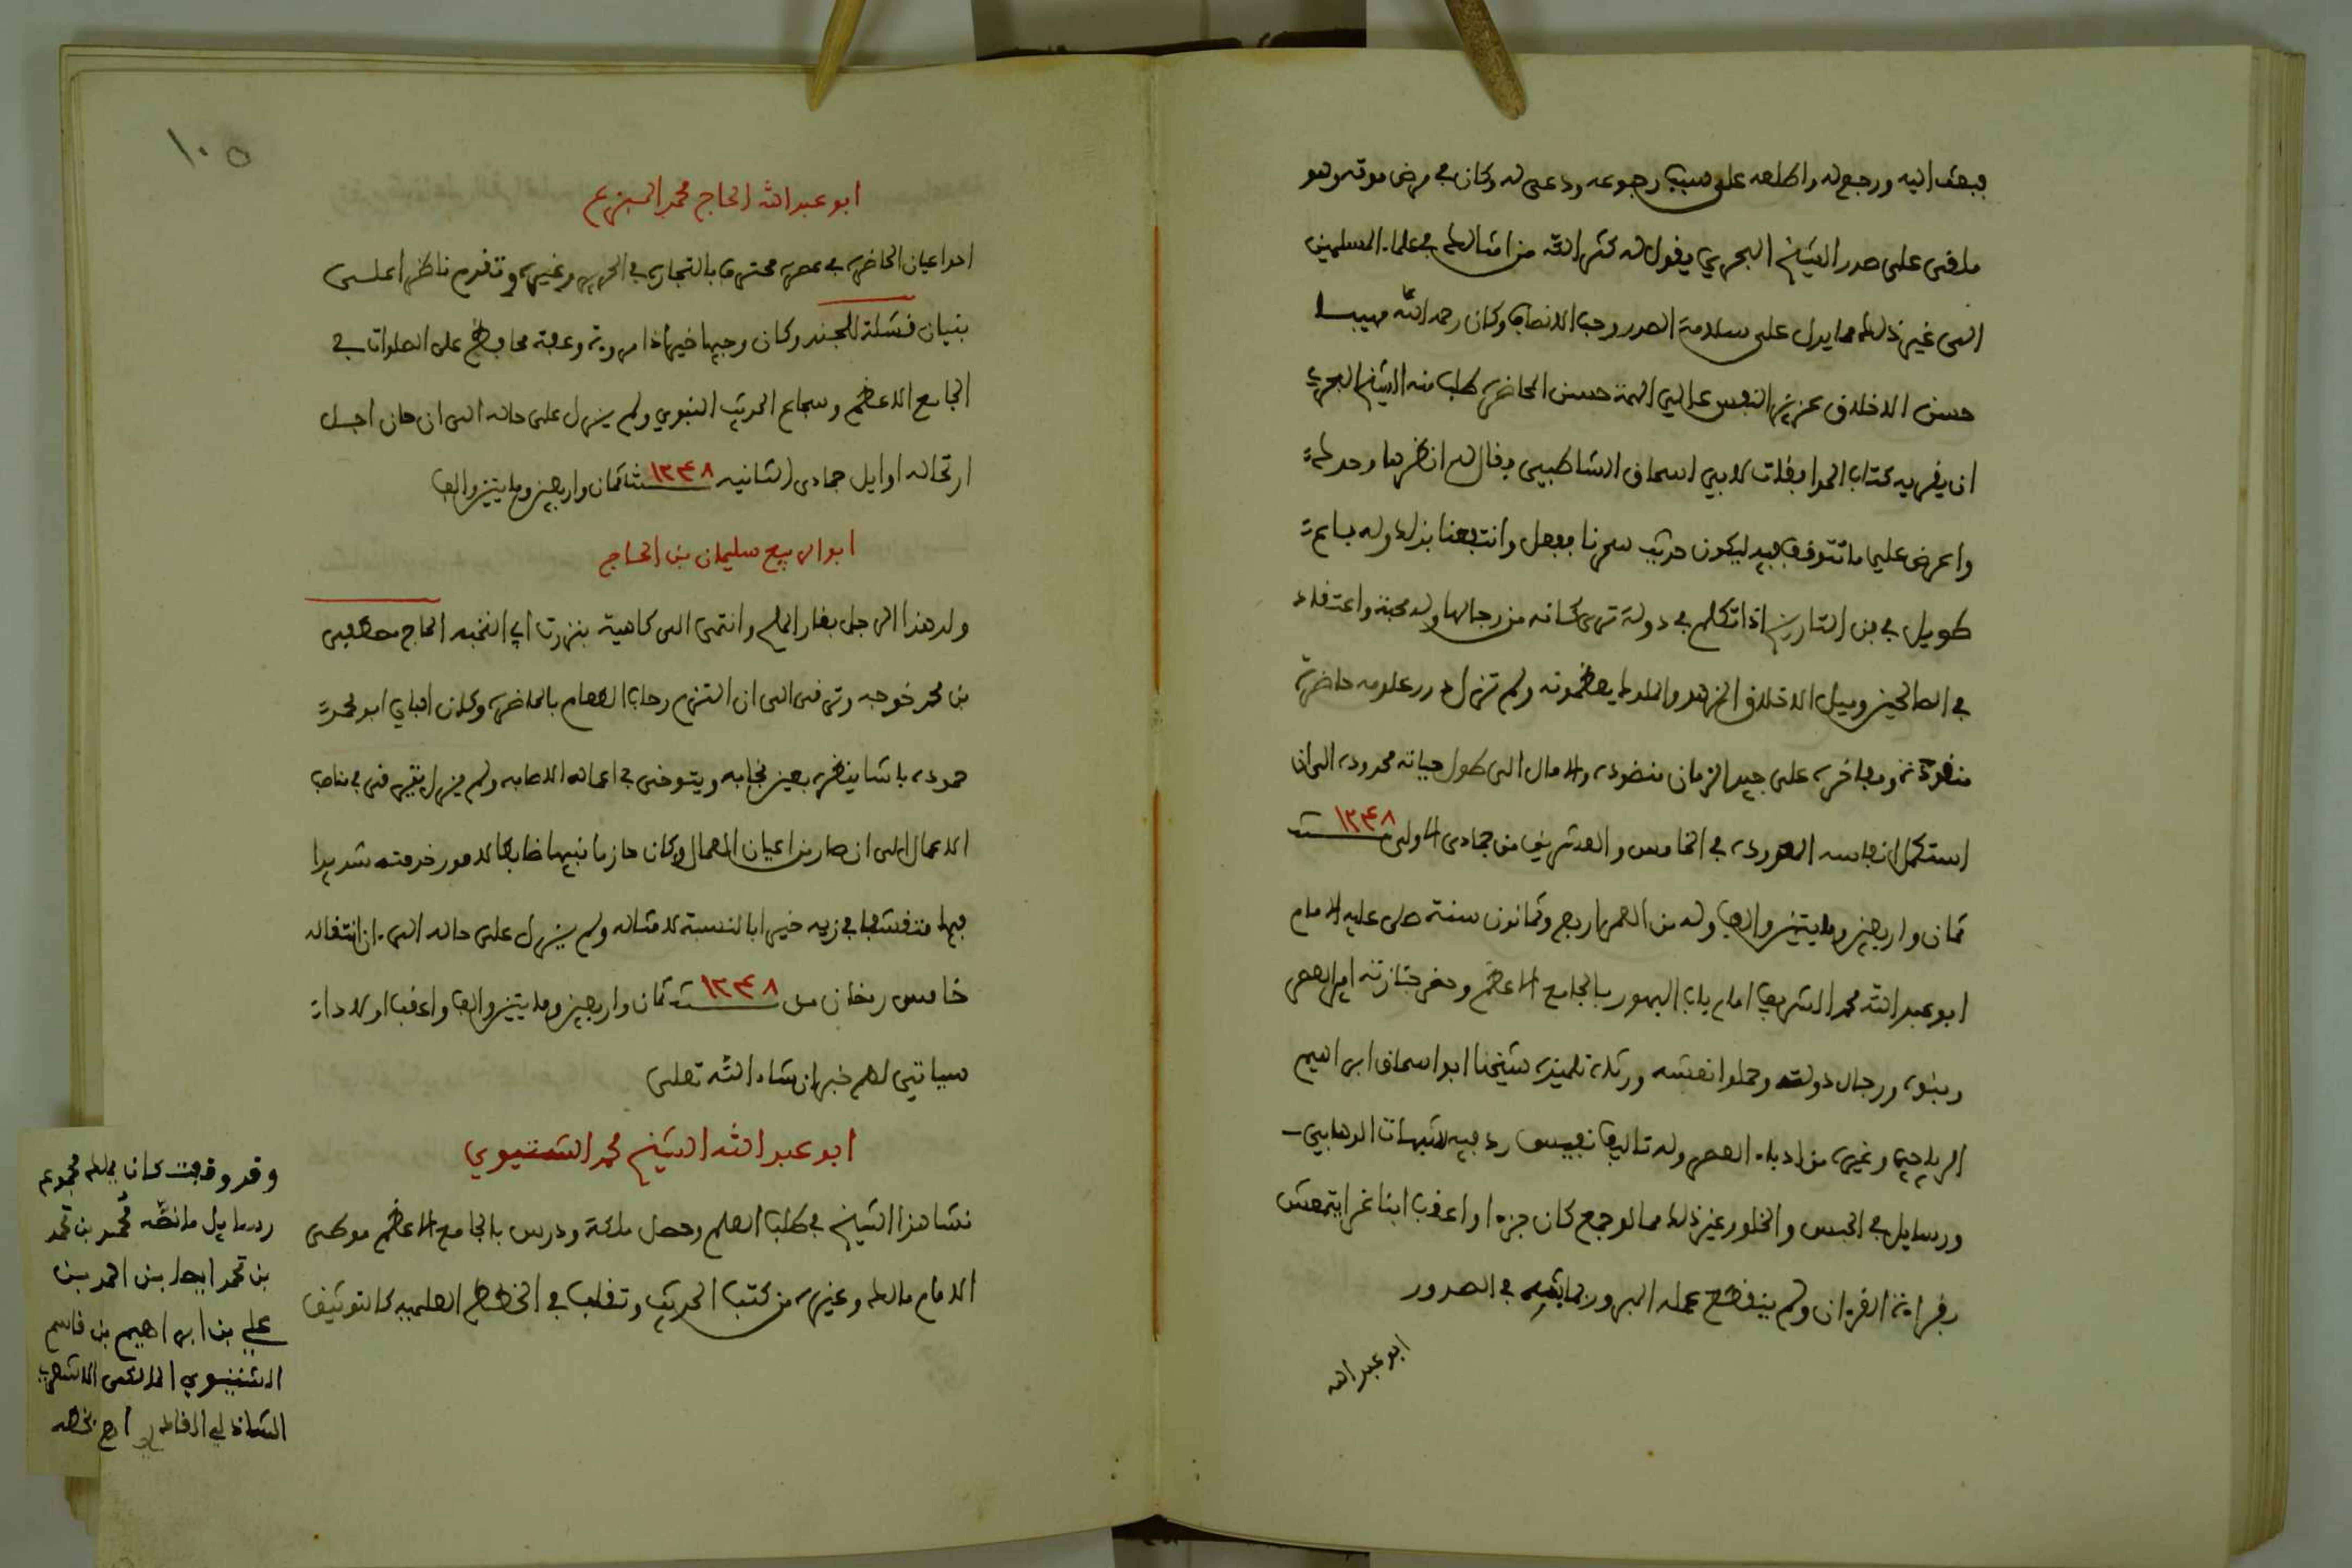 فبعث اليه ورجع له واطلعه على سبب رجوعه ودعى له وكان في مرض موته وهو
ملقى على صدر الشيخ البحري يقول له كثر الله من امثالك في علماء المسلمين
الى غير ذلك مما يدل على سلامة الصدر وحب الانصاف وكان رحمه الله مهيبا
حسن الاخلاق عزيز النفس عالي الهمة حسن المحاضرة طلب منه الشيخ البحري
ان يقريه كتاب الموافقات لابي اسحاق الشاطبي فقال له انظرها وحدك
واعرض علي ما تتوقف فيه ليكون حديث سمرنا ففعل وانتفعنا بذلك وله باع
طويل في فن التاريخ اذا تكلم في دولة ترى كانه من رجالها وله محبة واعتقاد
في الصالحين وميل لاخلاق الزهد والملوك يعظمونه ولم تزل درر علومه حاضرة
منقودة ومفاخره على جيد الزمان منضودة والامال الى طول حياته ممدودة الى ان
استكمل انفاسه المعدودة في الخامس والعشرين من جمادى الاولى سنة ١٢٤٨
ثمان واربعين ومايتين والف وله من العمر اربع وثمانون سنة صلى عليه الامام
ابو عبد الله محمد الشريف امام باب البهور بالجامع الاعظم وحضر جنازته امير العصر
وبنوه ورجال دولته وحملوا نعشه ورثاه تلميذه شيخنا ابو اسحاق ابراهيم
الرياحي وغيره من ادباء العصر وله تاليف نفيس رد فيه لشبهات الوهابي
ورسايل في الحبس والخلو وغير ذلك مما لو جمع كان جزءا واعقب ابنا غرا يتمعش
بقراءة القرءان ولم ينقطع عمله المبرور بما بثه في الصدور
ابو عبد الله
١٠٥
ابو عبد الله الحاج محمد المبزع
احد اعيان الحاضرة في عصره محترف بالتجارة في الحرير وغيره وتقدم ناظرا على
بنيان قشلة للجند وكان وجيها خيرا ذا مروية وعفة محافظ على الصلوات في
الجامع الاعظم وسماع الحديث النبوي ولم يزل على حاله الى ان حان اجل
ارتحاله اوايل جمادى الثانيه سنة ١٢٤٨ ثمان واربعين ومايتين والف
ابو الربيع سليمان بن الحاج
ولد هذا الرجل بغار الملح وانتمى الى كاهية بنزرت ابي النخبه الحاج مصطفى
بن محمد خوجه وترقى الى ان التزم رحاب الطعام بالحاضرة وكان الباي ابو محمد
حمودة باشا ينظره بعين نجابه ويتوخى في اعماله الاصابه ولم يزل يترقى في مناصب
الاعمال الى ان صار من اعيان العمال وكان حازما نبيها ضابطا لامور خدمته شديدا
فيها متقشفا في زيه خيرا بالنسبة لامثاله ولم يزل على حاله الى ان انتقاله
خامس رمضان من سنة ١٢٤٨ ثمان واربعين ومايتين والف واعقب اولادا
سياتي لهم خبر ان شاء الله تعلى
ابو عبد الله الشيخ محمد الشتيوي
نشا هذا الشيخ في طلب العلم وحصل ملكة ودرس بالجامع الاعظم موطى
الامام مالك وغيره من كتب الحديث وتقلب في الخطط العلميه كالتوثيق
وقد وقفت كان بملك مجموع
رسايل ما نصه محمد بن محمد
بن محمد ايضا بن احمد بن
علي بن ابراهيم بن قاسم
الشتيوي المالكي الاشعري
الشاذلي القادري اهـ بخطه